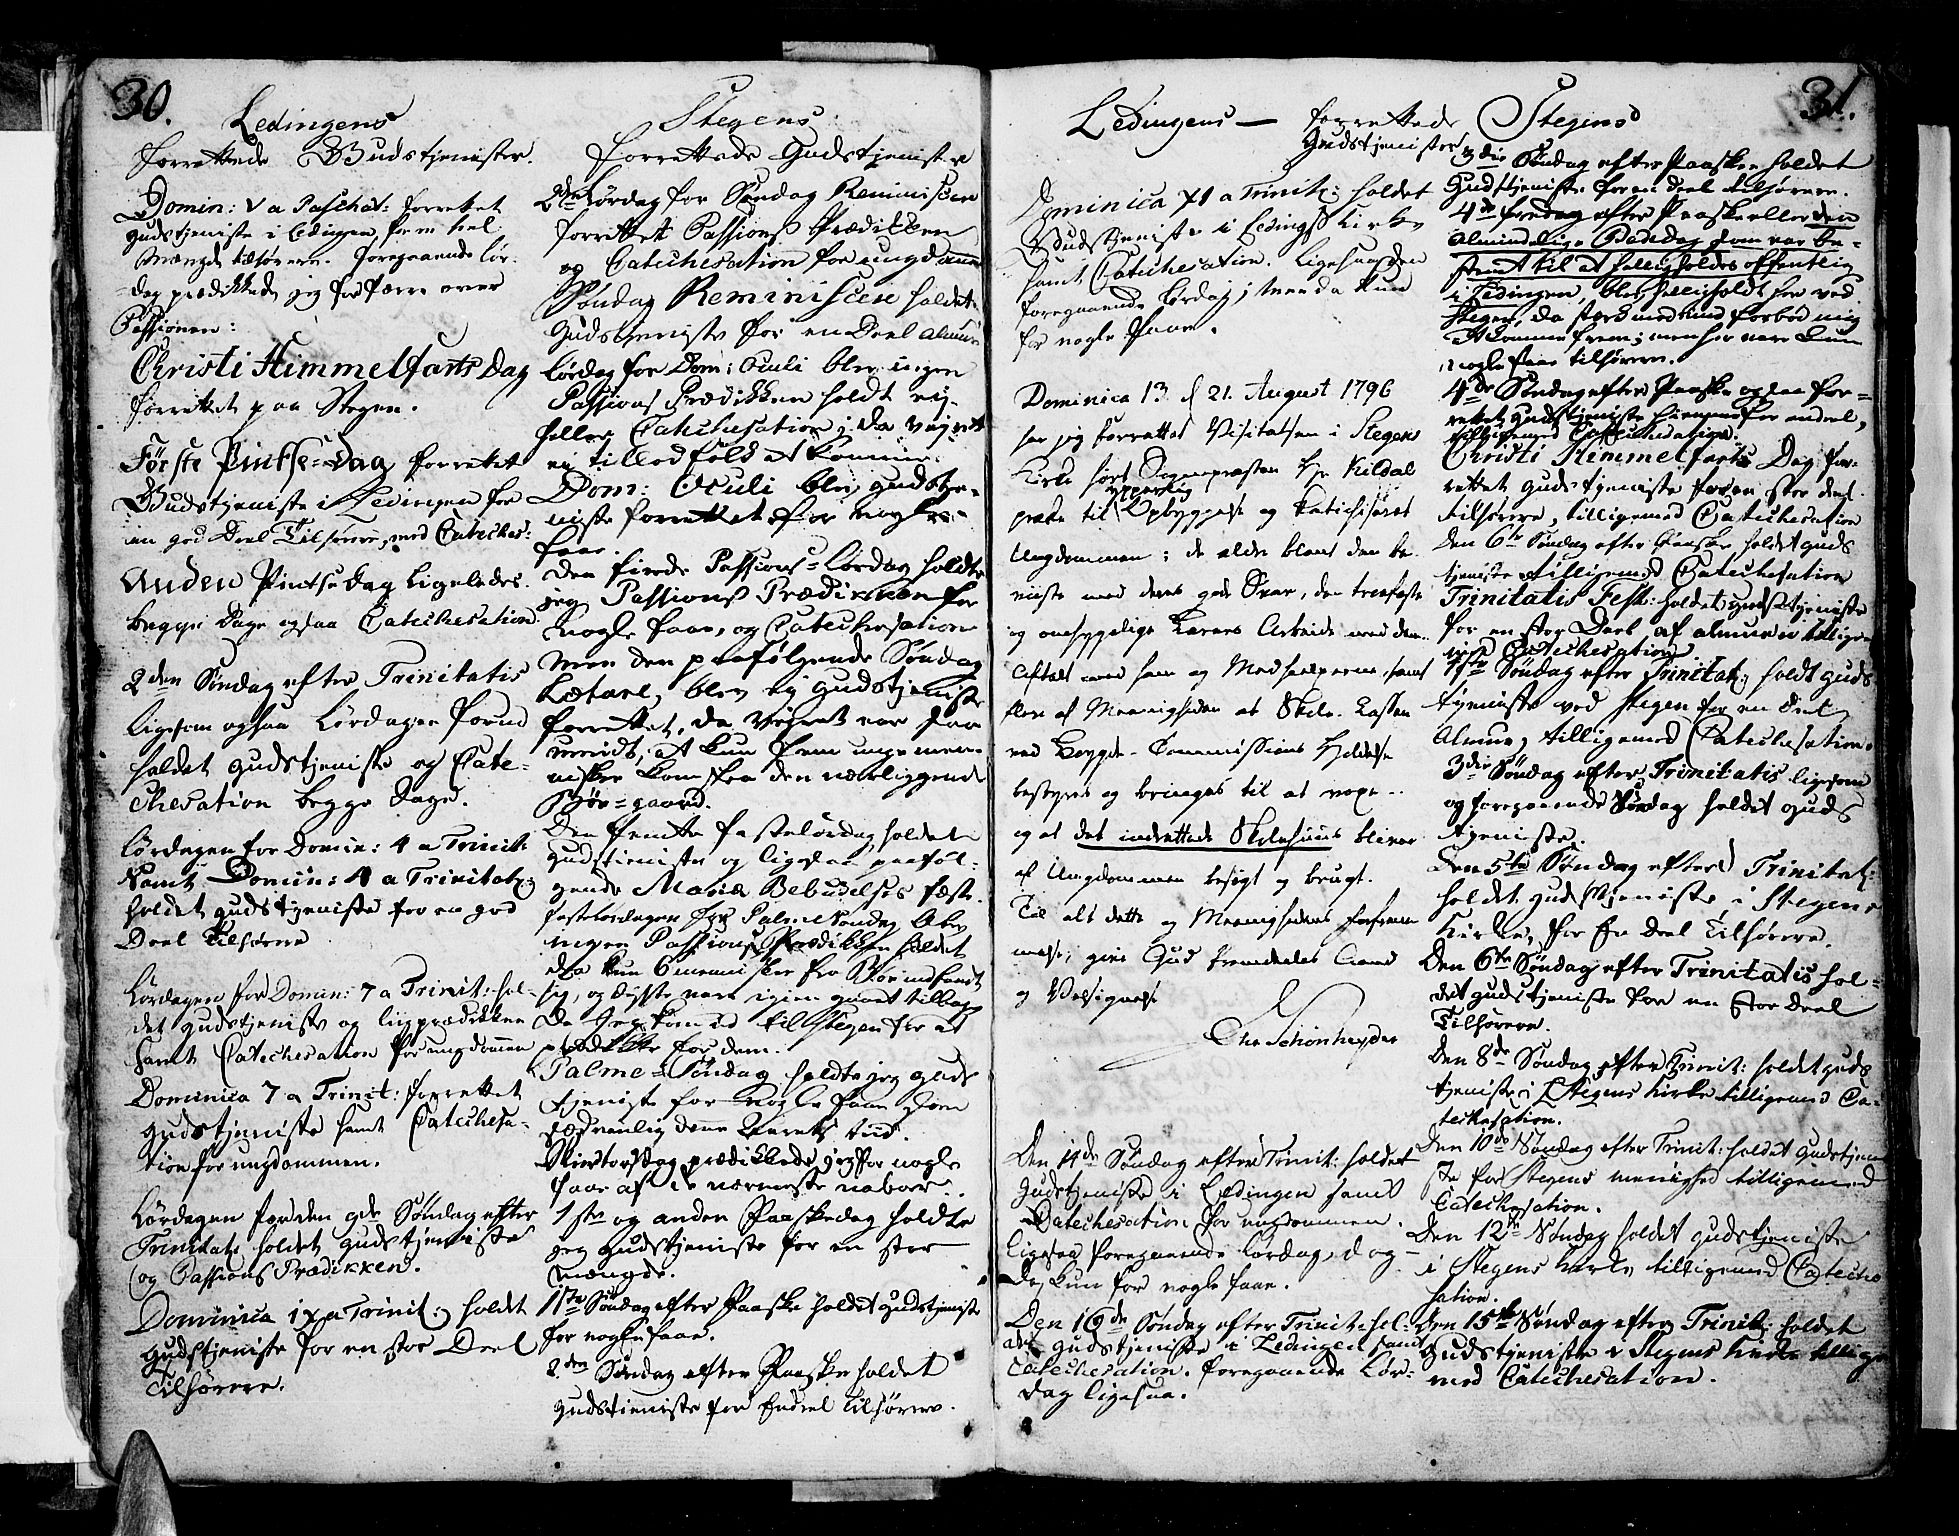 30.
Ledingens
forrettede Gudstjenister.
Domin: V a Paschat: forrettet
gudstjeniste i Ledingen for en heel
Mængde tilhørere. foregaaende lør-
dag prædikkede jeg for færre over
Passionen:
Christi Himmelfarts Dag
forrettet paa Stegen.
Første Pintse-Dag forrettet
Gudstjeniste i Ledingen for
en god Deel Tilhørere, med Cateches:
Anden Pintse Dag ligeledes.
begge Dage ogsaa Catechesation
2den Søndag efter Trinitatis
ligesom ogsaa Lørdagen forud
holdet gudstjeniste og Cate-
chesation begge Dage.
Lørdagen for Domin: 4 a Trinit:
samt Domin: 4 a Trinitat:
holdet gudstjeniste for en god
Deel Tilhørere
Lørdagen for Domin: 7 a Trinit: hol-
det gudstjeniste og liigprædikken
samt Catechesation for ungdommen
Dominica 7 a Trinit: forrettet
gudstjeniste samt Catechesa-
tion for ungdommen.
Lørdagen for den 9de Søndag efter
Trinitatis holdet gudstjeniste
og Passions Prædikken.
Dominica IX a Trinit: holdet
gudstjeniste for en stor Deel
Tilhørere.
Stegens
forrettede Gudstjenister
2den Lørdag for Søndag Reminiscere
forrettet Passions Prædikken
og Catechesation for ungdommen
Søndag Reminiscere holdet
Gudstjeniste for en Deel almue
lørdag for Dom: Oculi blev ingen
Passions Prædikken holdt ey
heller Catechesation, da vejret
ei tillod folk at komme.
Dom: Oculi blev gudstje-
niste forrettet for nogle
faae.
Den fierde Passions-Lørdag holdte
jeg Passions Prædikken for
nogle faae, og Catechesation
Men den paafølgende Søndag
Lætare, blev ey gudstjeniste
forrettet, da Vejret var saa
ondt, at kun fem unge men-
nisker kom fra den nærliggende
-gaard.
Den femte fastelørdag holdet
gudstjeniste og ligesaa paaføl-
gende Mariæ Bebudelses fæst.
fastelørdagen for Palmesøndag blev
ingen Passions Prædikken holdet
da kun 6 mennisker fra indfandt
sig, og de fleste vare igien gaaet tilbage
da jeg kom til Stegen for at
prædikke for dem.
Palme-Søndag holdte jeg guds
tjeniste for nogle faae som
sædvanlig denne Aarets tid.
Skiertorsdag prædikkede jeg for nogle
faae af de nærmeste naboer.
1ste og anden Paaskedag holdte
jeg gudstjeniste for en stor
Mængde.
1ste Søndag efter Paaske holdet gudstjeniste
for nogle faae.
2den Søndag efter Paaske holdet
gudstieniste for Endeel Tilhørere.
31.
Ledingens — forrettede Stegens
Gudstjenister
Dominica XI a Trinit: holdet
Gudstjeniste i Ledings Kirke
samt Catechesation. ligesaa den
foregaaende Lørdag; men da kun
for nogle faae.
Dominica 13. d 21. August 1796
har jeg forrettet Visitatsen i Stegens
Kirke hørt Sognepræsten Hr Kildal
præke til ypperlig Opbyggelse og Katichiseret
Ungdommen; de ældre blant dem be-
viiste med deres gode Svar, den troefaste
og omhyggelige Lærers Arbeide med dem.
Aftalt med ham og Medhielperne, samt
flere af Meenigheden at Skole-Kassen
ved Bygde-Commissions Hielp
bestyres og bringes til at voxe
og at det indrettede Skolehuus bliver
af Ungdommen besøgt og brugt.
Til alt dette og Meenighedens forfrem-
melse, give Gud fremdeles Aand
og Velsignelse
Chr Schønheyder
Den 14de Søndag efter Trinit: holdet
gudstjeniste i Ledingen samt
Catechesation for ungdommen.
ligesaa foregaaende lørdag, dog
da kun for nogle faae.
Den 16de Søndag efter Trinit: hol-
det gudstjeniste i Ledingen samt
Catechesation. foregaaende Lør-
dag ligesaa.
3die Søndag efter Paaske holdet
Gudstjeniste for en deel tilhørere.
4de fredag efter Paaske eller den
almindelige Bededag som var be-
stemt til at helligholdes offentlig
i Ledingen, blev helligholdt her ved
Stegen, da storm og mod vind forbød mig
at komme frem; men her vare kun
nogle faae tilhørere.
4de Søndag efter Paaske ogsaa for-
rettet gudstjeniste hersteds for endeel,
tilligemed Catechesation.
Christi Himmelfarts Dag for-
rettet gudstjeniste for en stor deel
tilhørere, tilligemed Catechesation
Den 6te Søndag efter Paaske holdet guds
tjeniste tilligemed Catechesation
Trinitatis Fest: holdet gudstjeniste
for en stor Deel af almuen tilligemed
Catechesation
1ste Søndag efter Trinitat: holdt guds
tjeniste ved Stegen for en Deel
Almue, tilligemed Catechesation.
3die Søndag efter Trinitatis ligesom
og foregaaende Søndag holdet guds
tjeniste.
Den 5te Søndag efter Trinitat:
holdet gudstjeniste i Stegens
Kirke, for En Deel Tilhørere.
Den 6te Søndag efter Trinitatis hol-
det gudstjeniste for en stor Deel
Tilhørere.
Den 8de Søndag efter Trinit: holdet guds
tjeniste i Stegens Kirke tilligemed Ca-
techesation.
Den 10de Søndag efter Trinit: holdet gudstjeni
ste for Stegens menighed tilligemed
Catechesation.
Den 12te Søndag holdet gudstjeniste
i Stegens Kirke tilligemed Cateche
sation.
Den 15de Søndag efter Trinit: holdet
gudstjeniste i Stegens Kirke tillige
med Catechesation.